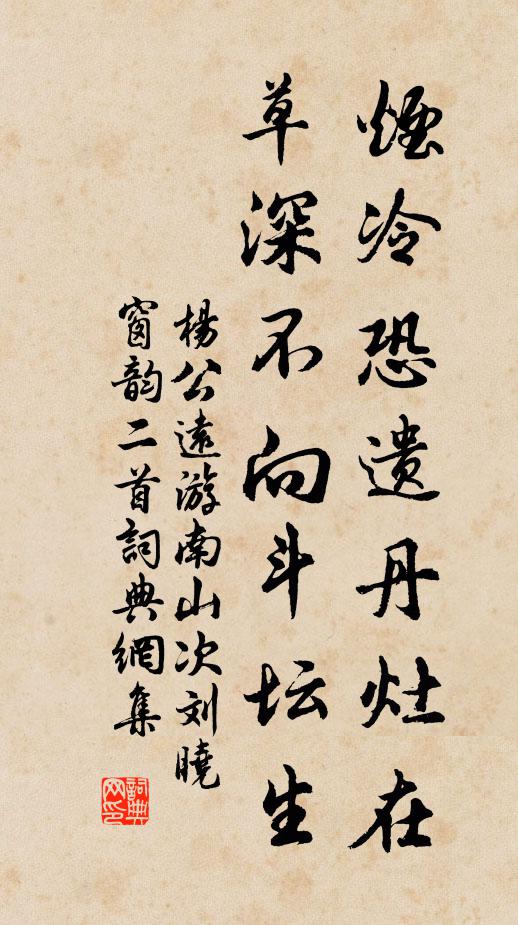 煙冷恐遗丹灶在
草深不向斗坛生
楊公遠游南山次刘曉
窗韵二首詞典網集
詞典网印